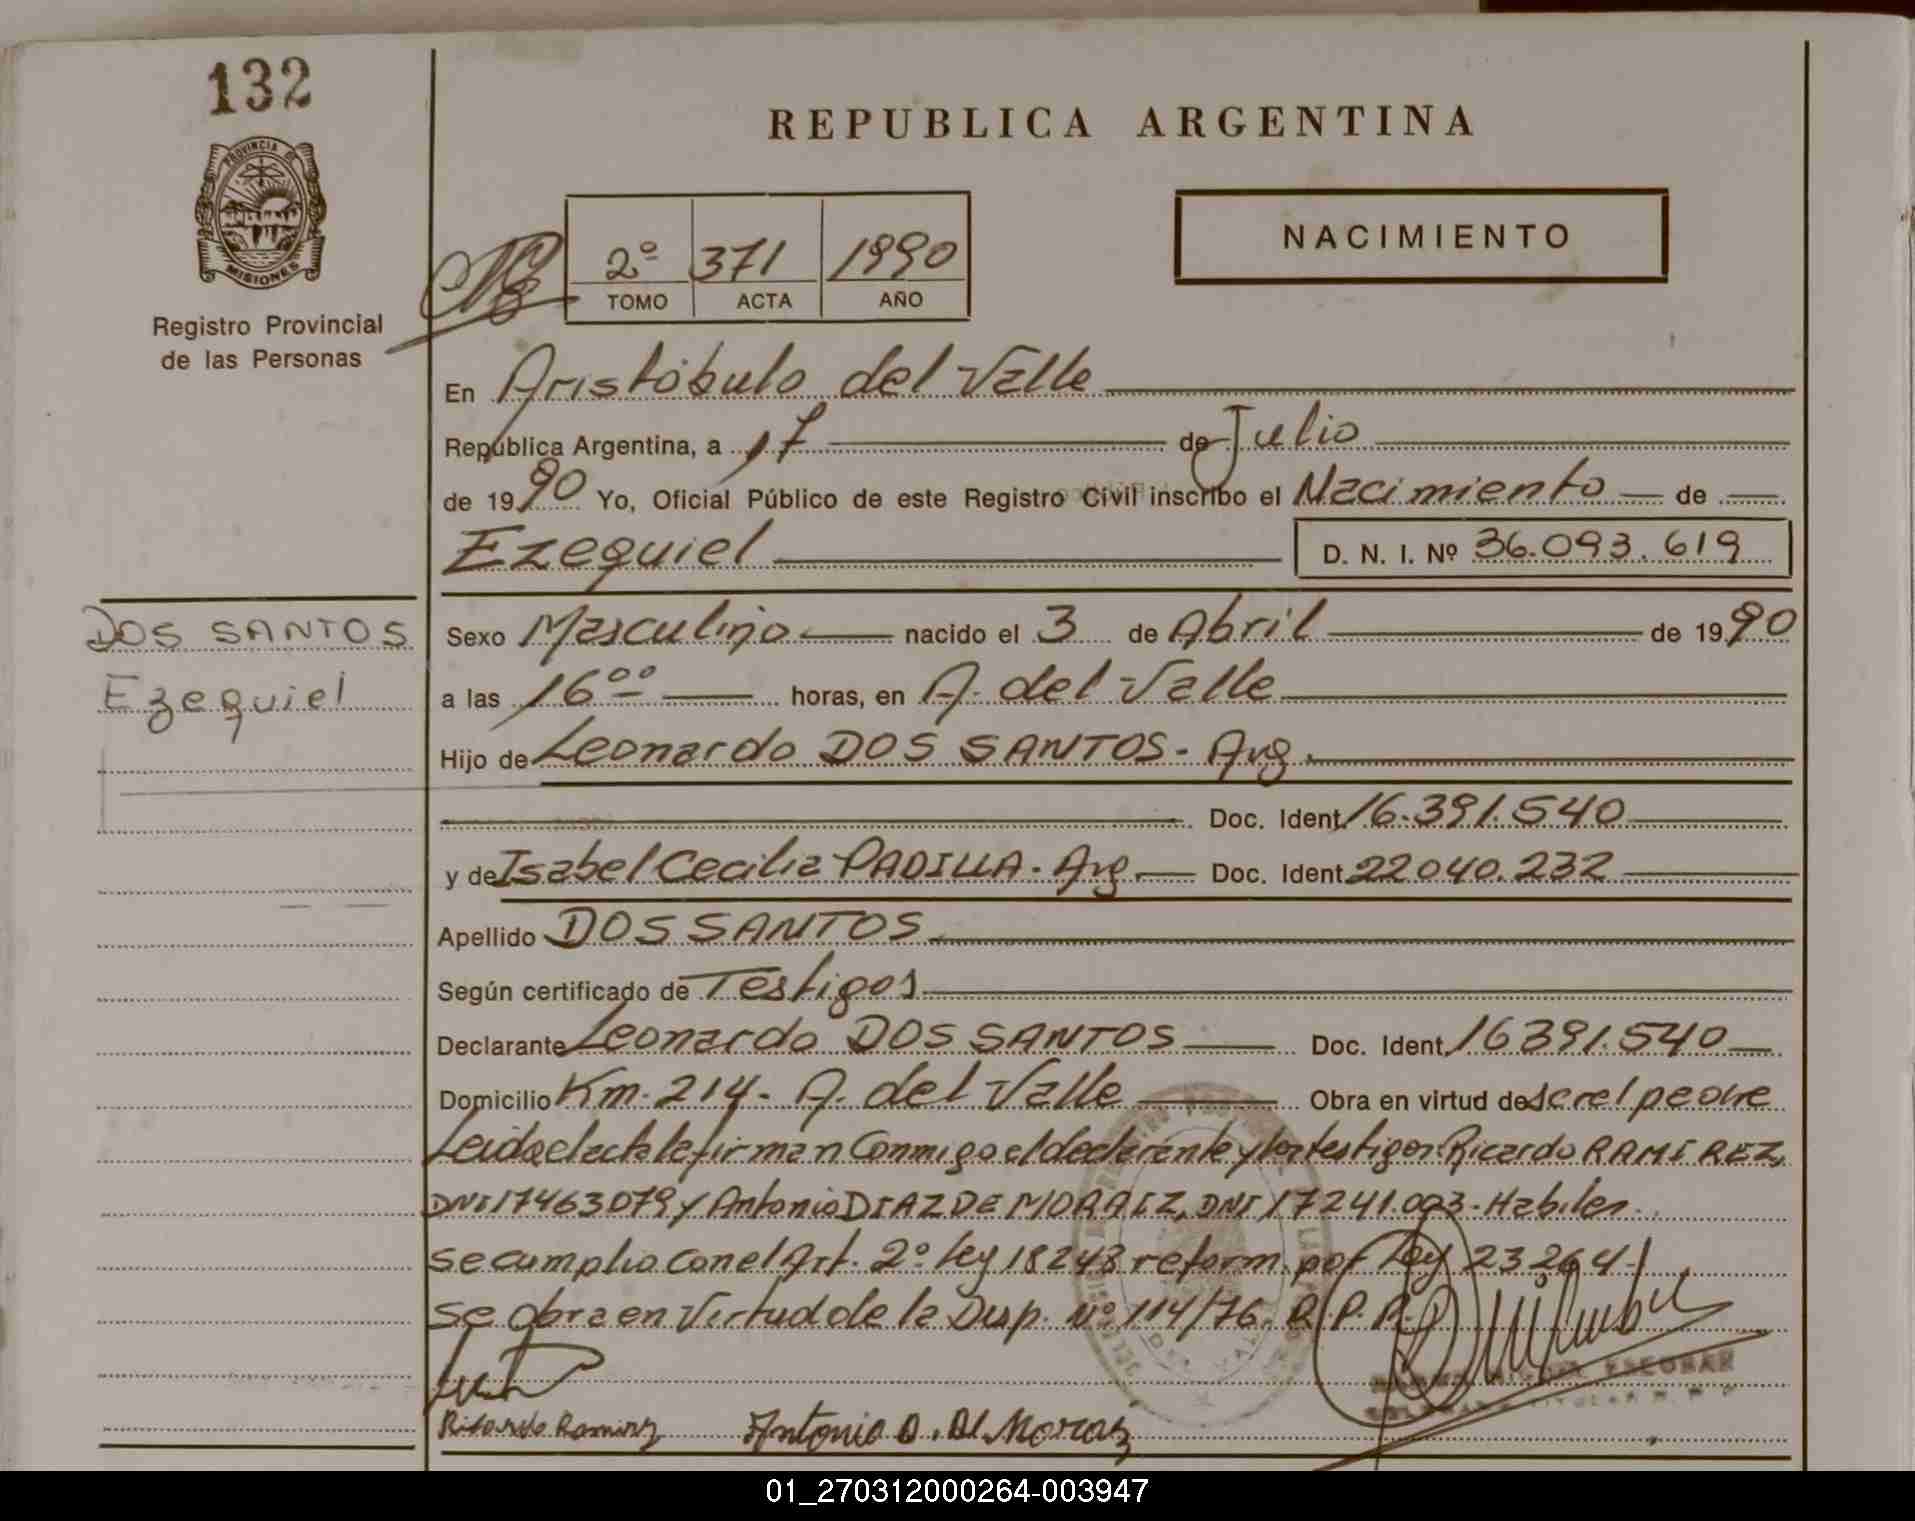 132
REPUBLICA ARGENTINA
PROVINCIA DE
MISIONES
Registro Provincial
de las Personas
2º 371 1990
TOMO ACTA AÑO
NACIMIENTO
En Aristóbulo del Valle
República Argentina, a 17 de Julio
de 1990 Yo, Oficial Público de este Registro Civil inscribo el Nacimiento de
Ezequiel D. N. I. Nº 36.093.619
DOS SANTOS
Ezequiel
Sexo Masculino nacido el 3 de Abril de 1990
a las 16ºº horas, en A. del Valle
Hijo de Leonardo DOS SANTOS - Arg.
Doc. Ident. 16.391.540
y de Isabel Cecilia PADILLA - Arg. Doc. Ident. 22040.232
Apellido DOS SANTOS
Según certificado de Testigos
Declarante Leonardo DOS SANTOS Doc. Ident. 16391.540
Domicilio Km. 214 - A. del Valle Obra en virtud de ser el padre
Leida el acta la firman conmigo el declarante y los testigos Ricardo RAMIREZ,
DNI 17463079 y Antonio DIAZ DE MORAEZ, DNI 17241.093 - Habiles.
Se cumplio con el Art. 2º Ley 18248 reform. por Ley 23264 -
Se obra en Virtud de la Disp. Nº 114/76. R.P.P.
ESCOBAR
Ricardo Ramirez Antonio D. D. Moraez
01_270312000264-003947